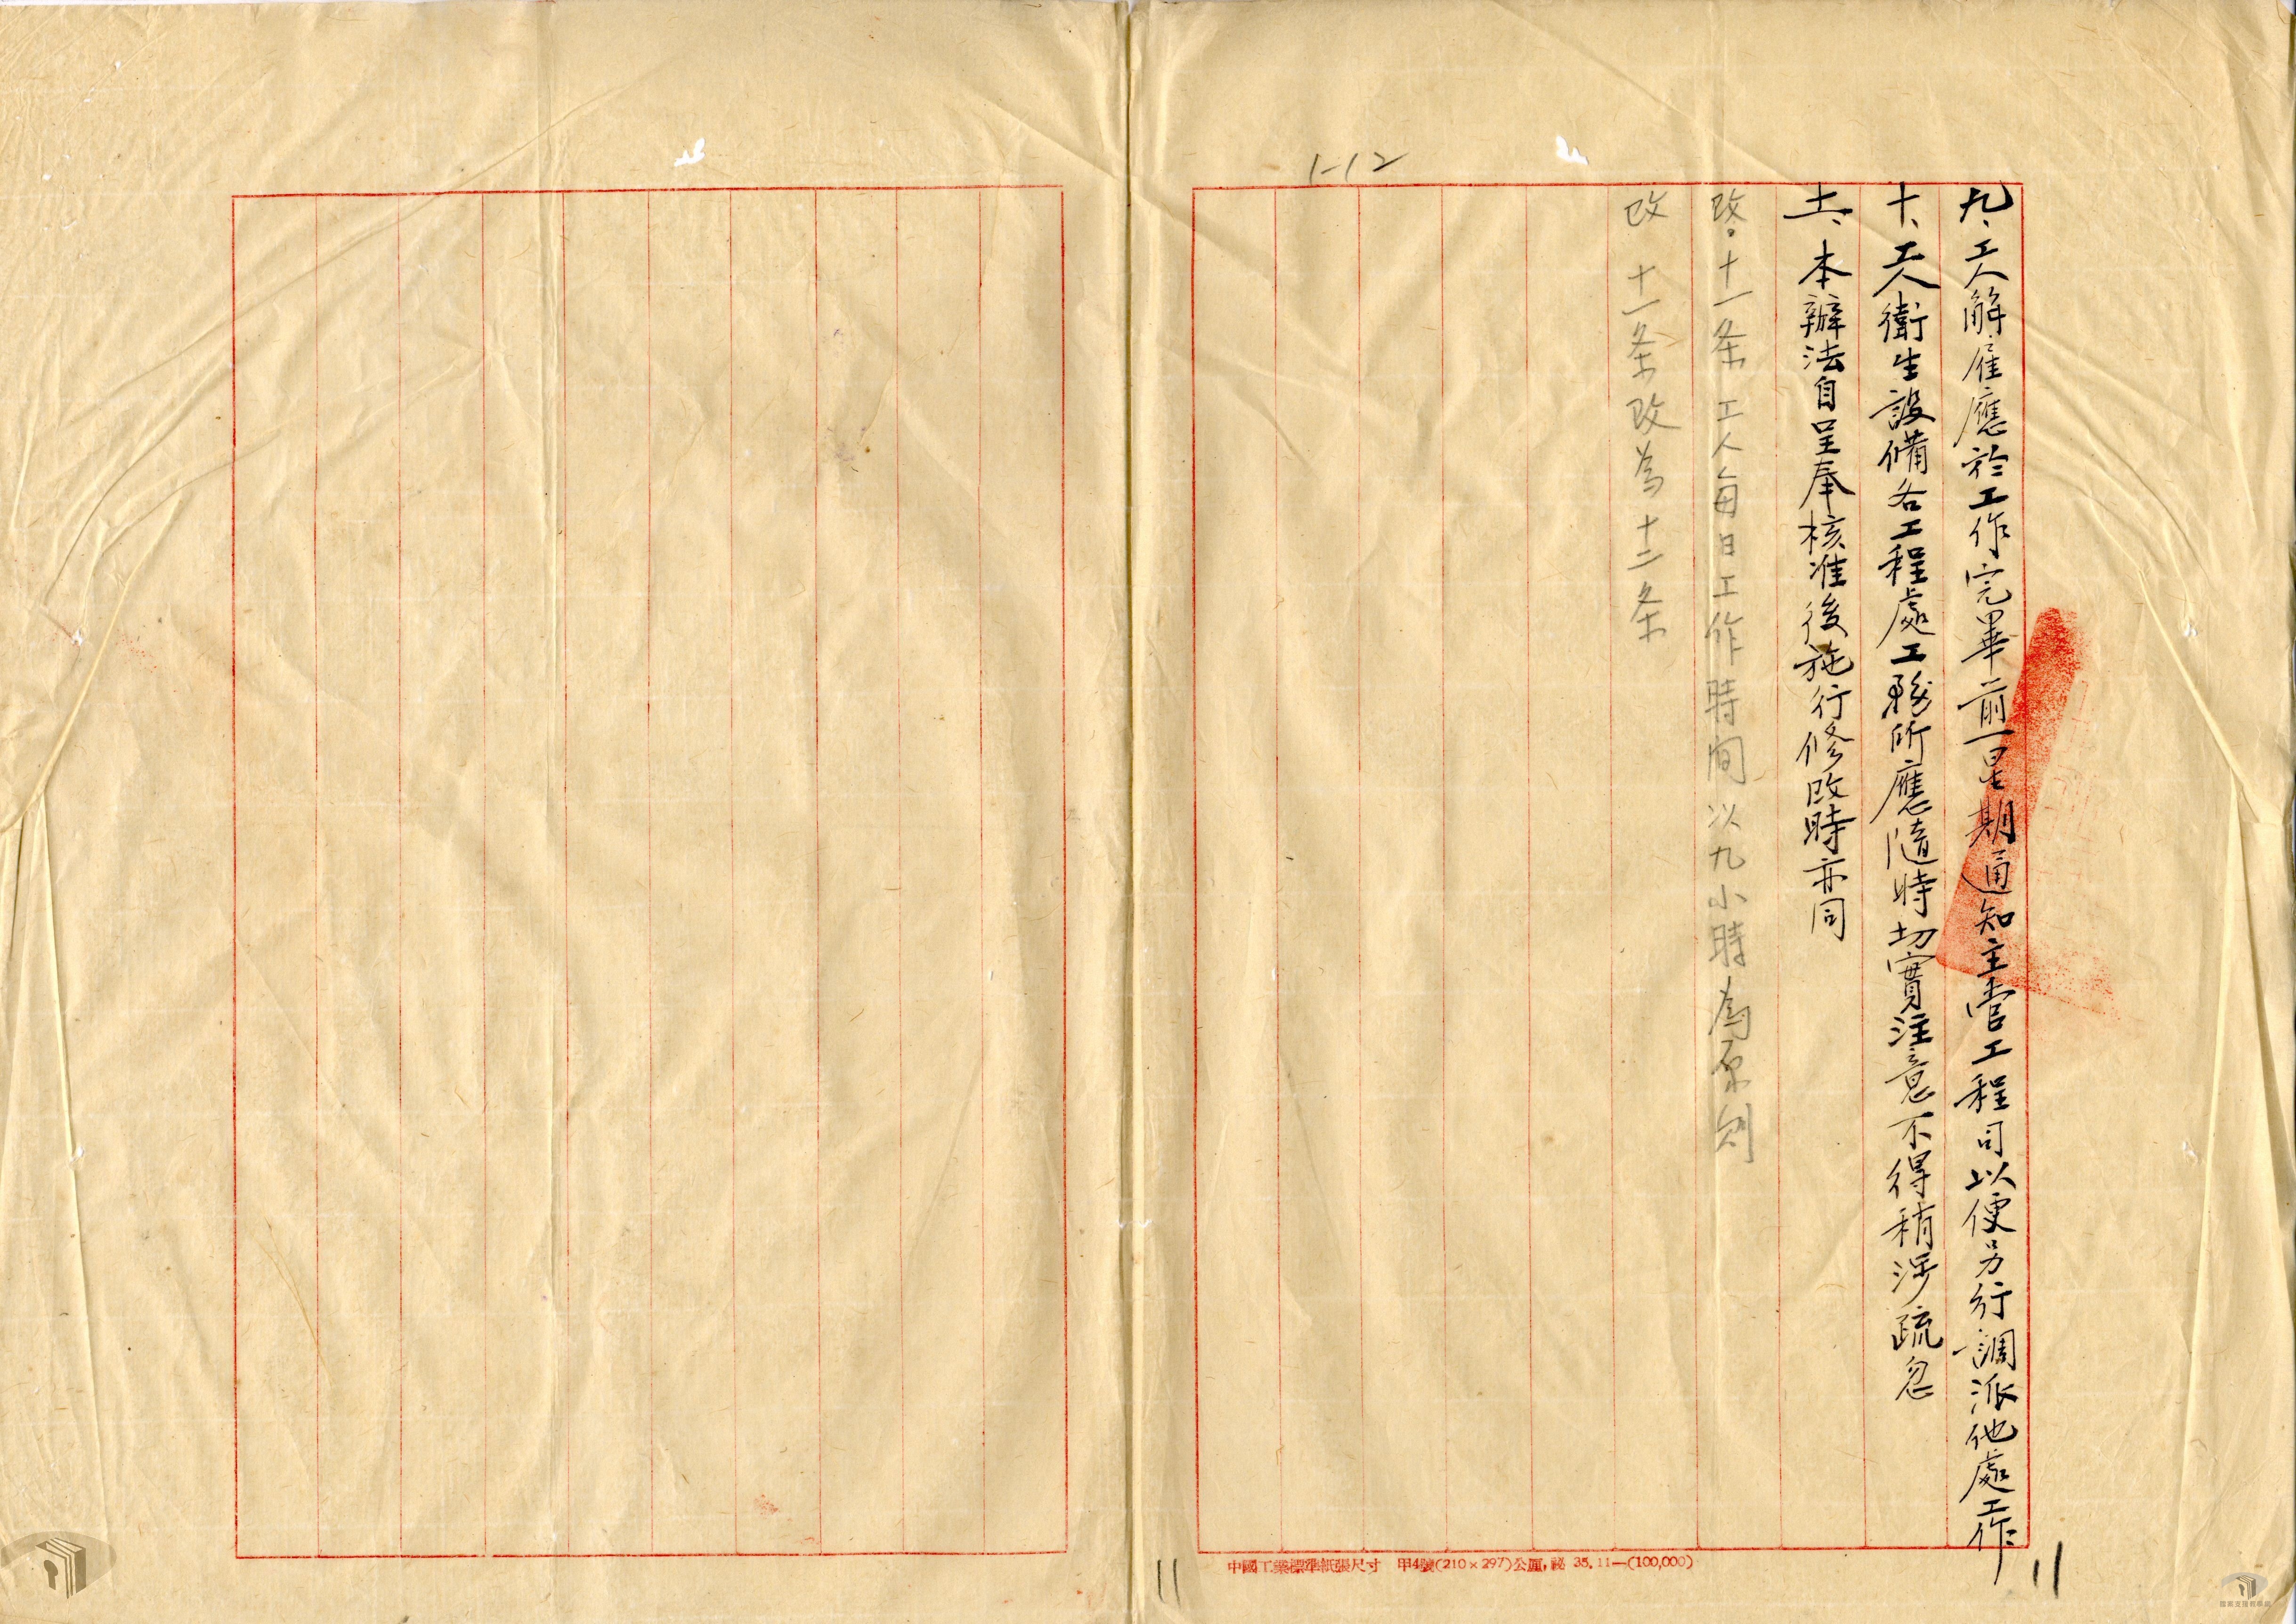 九、工人解雇應於工作完畢前一星期通知主管工程司以便另行調派他處工作
十、工人衛生設備各工程處工務所應隨時切實注意不得稍涉疏忽
十一、本辦法自呈奉核准後施行修改時亦同
改。十一条工人每日工作時间以九小時為原則
改 十一条改為十二条
1-12
中國工業標準紙張尺寸 甲4號(210×297)公厘,祕 35.11—(100,000)
11
11